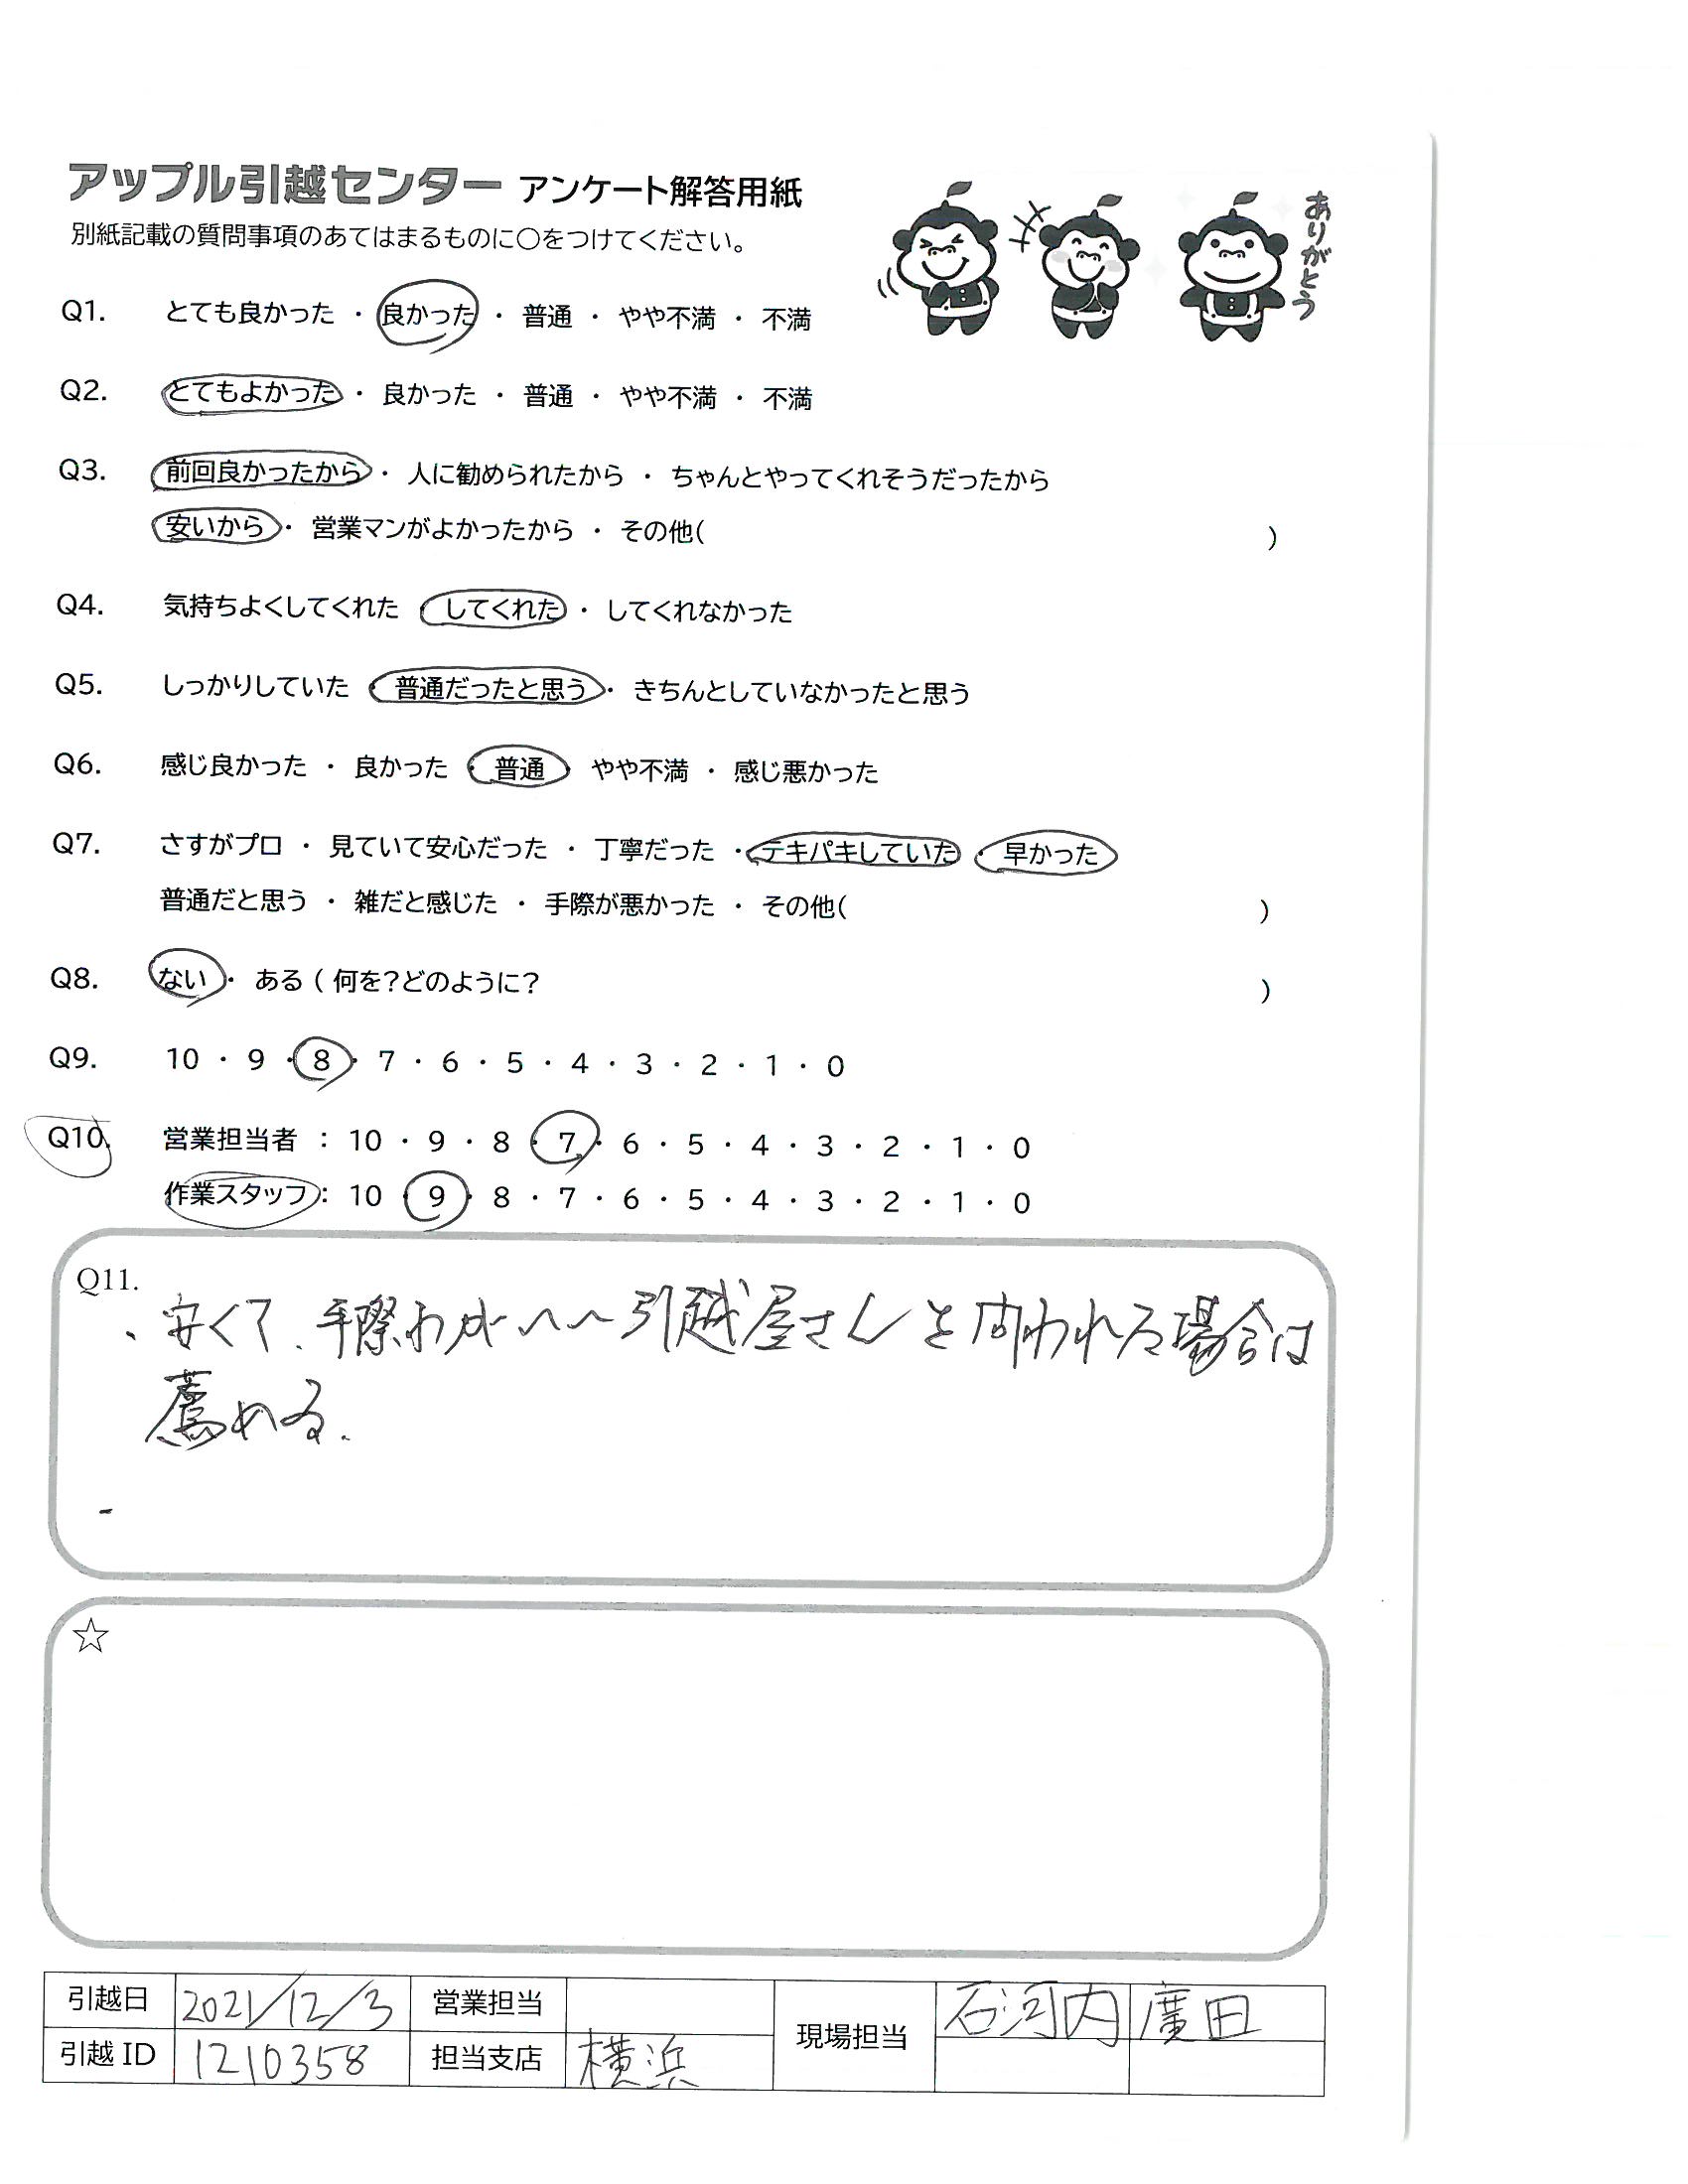 アップル引越センター アンケート解答用紙
別紙記載の質問事項のあてはまるものに〇をつけてください。
ありがとう
Q1. とても良かった ・ 良かった ・ 普通 ・ やや不満 ・ 不満
Q2. とてもよかった ・ 良かった ・ 普通 ・ やや不満 ・ 不満
Q3. 前回良かったから ・ 人に勧められたから ・ ちゃんとやってくれそうだったから
安いから ・ 営業マンがよかったから ・ その他( )
Q4. 気持ちよくしてくれた ・ してくれた ・ してくれなかった
Q5. しっかりしていた ・ 普通だったと思う ・ きちんとしていなかったと思う
Q6. 感じ良かった ・ 良かった ・ 普通 ・ やや不満 ・ 感じ悪かった
Q7. さすがプロ ・ 見ていて安心だった ・ 丁寧だった ・ テキパキしていた ・ 早かった
普通だと思う ・ 雑だと感じた ・ 手際が悪かった ・ その他( )
Q8. ない ・ ある ( 何を?どのように? )
Q9. 10 ・ 9 ・ 8 ・ 7 ・ 6 ・ 5 ・ 4 ・ 3 ・ 2 ・ 1 ・ 0
Q10. 営業担当者 : 10 ・ 9 ・ 8 ・ 7 ・ 6 ・ 5 ・ 4 ・ 3 ・ 2 ・ 1 ・ 0
作業スタッフ : 10 ・ 9 ・ 8 ・ 7 ・ 6 ・ 5 ・ 4 ・ 3 ・ 2 ・ 1 ・ 0
Q11.
、安くて、手際がいい引越屋さんと問われる場合は
薦める.
☆
引越日 2021/12/3 営業担当 現場担当 石河内 廣田
引越 ID 1210358 担当支店 横浜